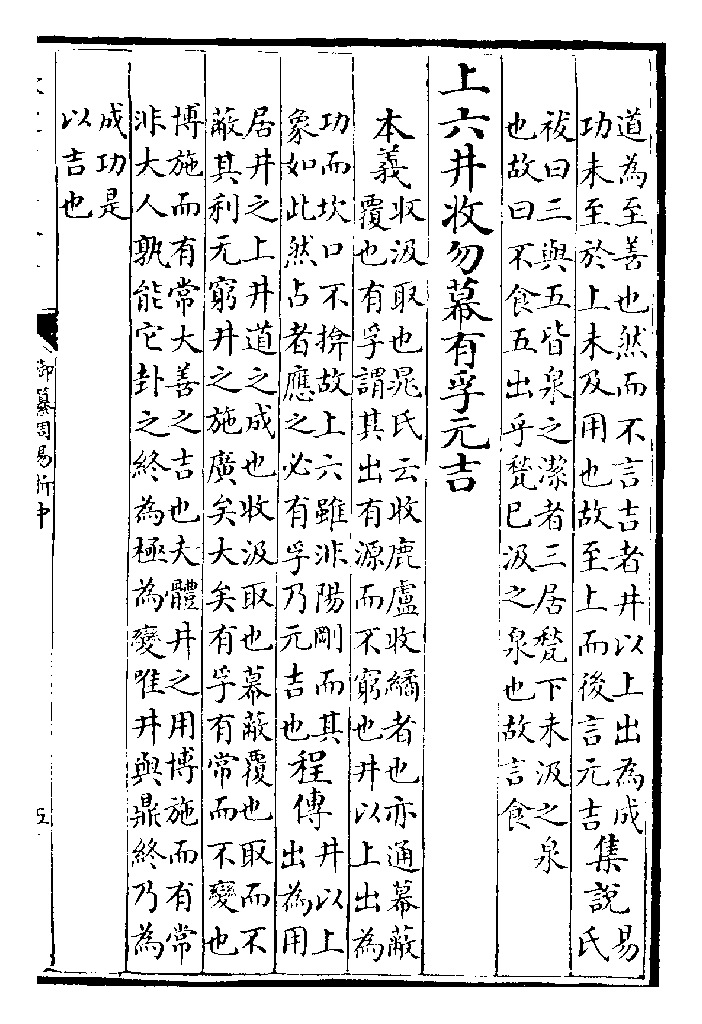 道為至善也然而不言吉者井以上出為成
功未至於上未及用也故至上而後言元吉
集說
易
氏
祓曰三與五皆泉之潔者三居甃下未汲之泉
也故曰不食五出乎甃巳汲之泉也故言食
上六井收勿幕有孚元吉
本義
收汲取也晁氏云收鹿盧收繘者也亦通幕蔽
覆也有孚謂其出有源而不窮也井以上出為
功而坎口不揜故上六雖非陽剛而其
象如此然占者應之必有孚乃元吉也
程傳
井以上
出為用
居井之上井道之成也收汲取也幕蔽覆也取而不
蔽其利无窮井之施廣矣大矣有孚有常而不變也
博施而有常大善之吉也夫體井之用博施而有常
非大人孰能它卦之終為極為變唯井與鼎終乃為
成功是
以吉也
御纂周易折中
五